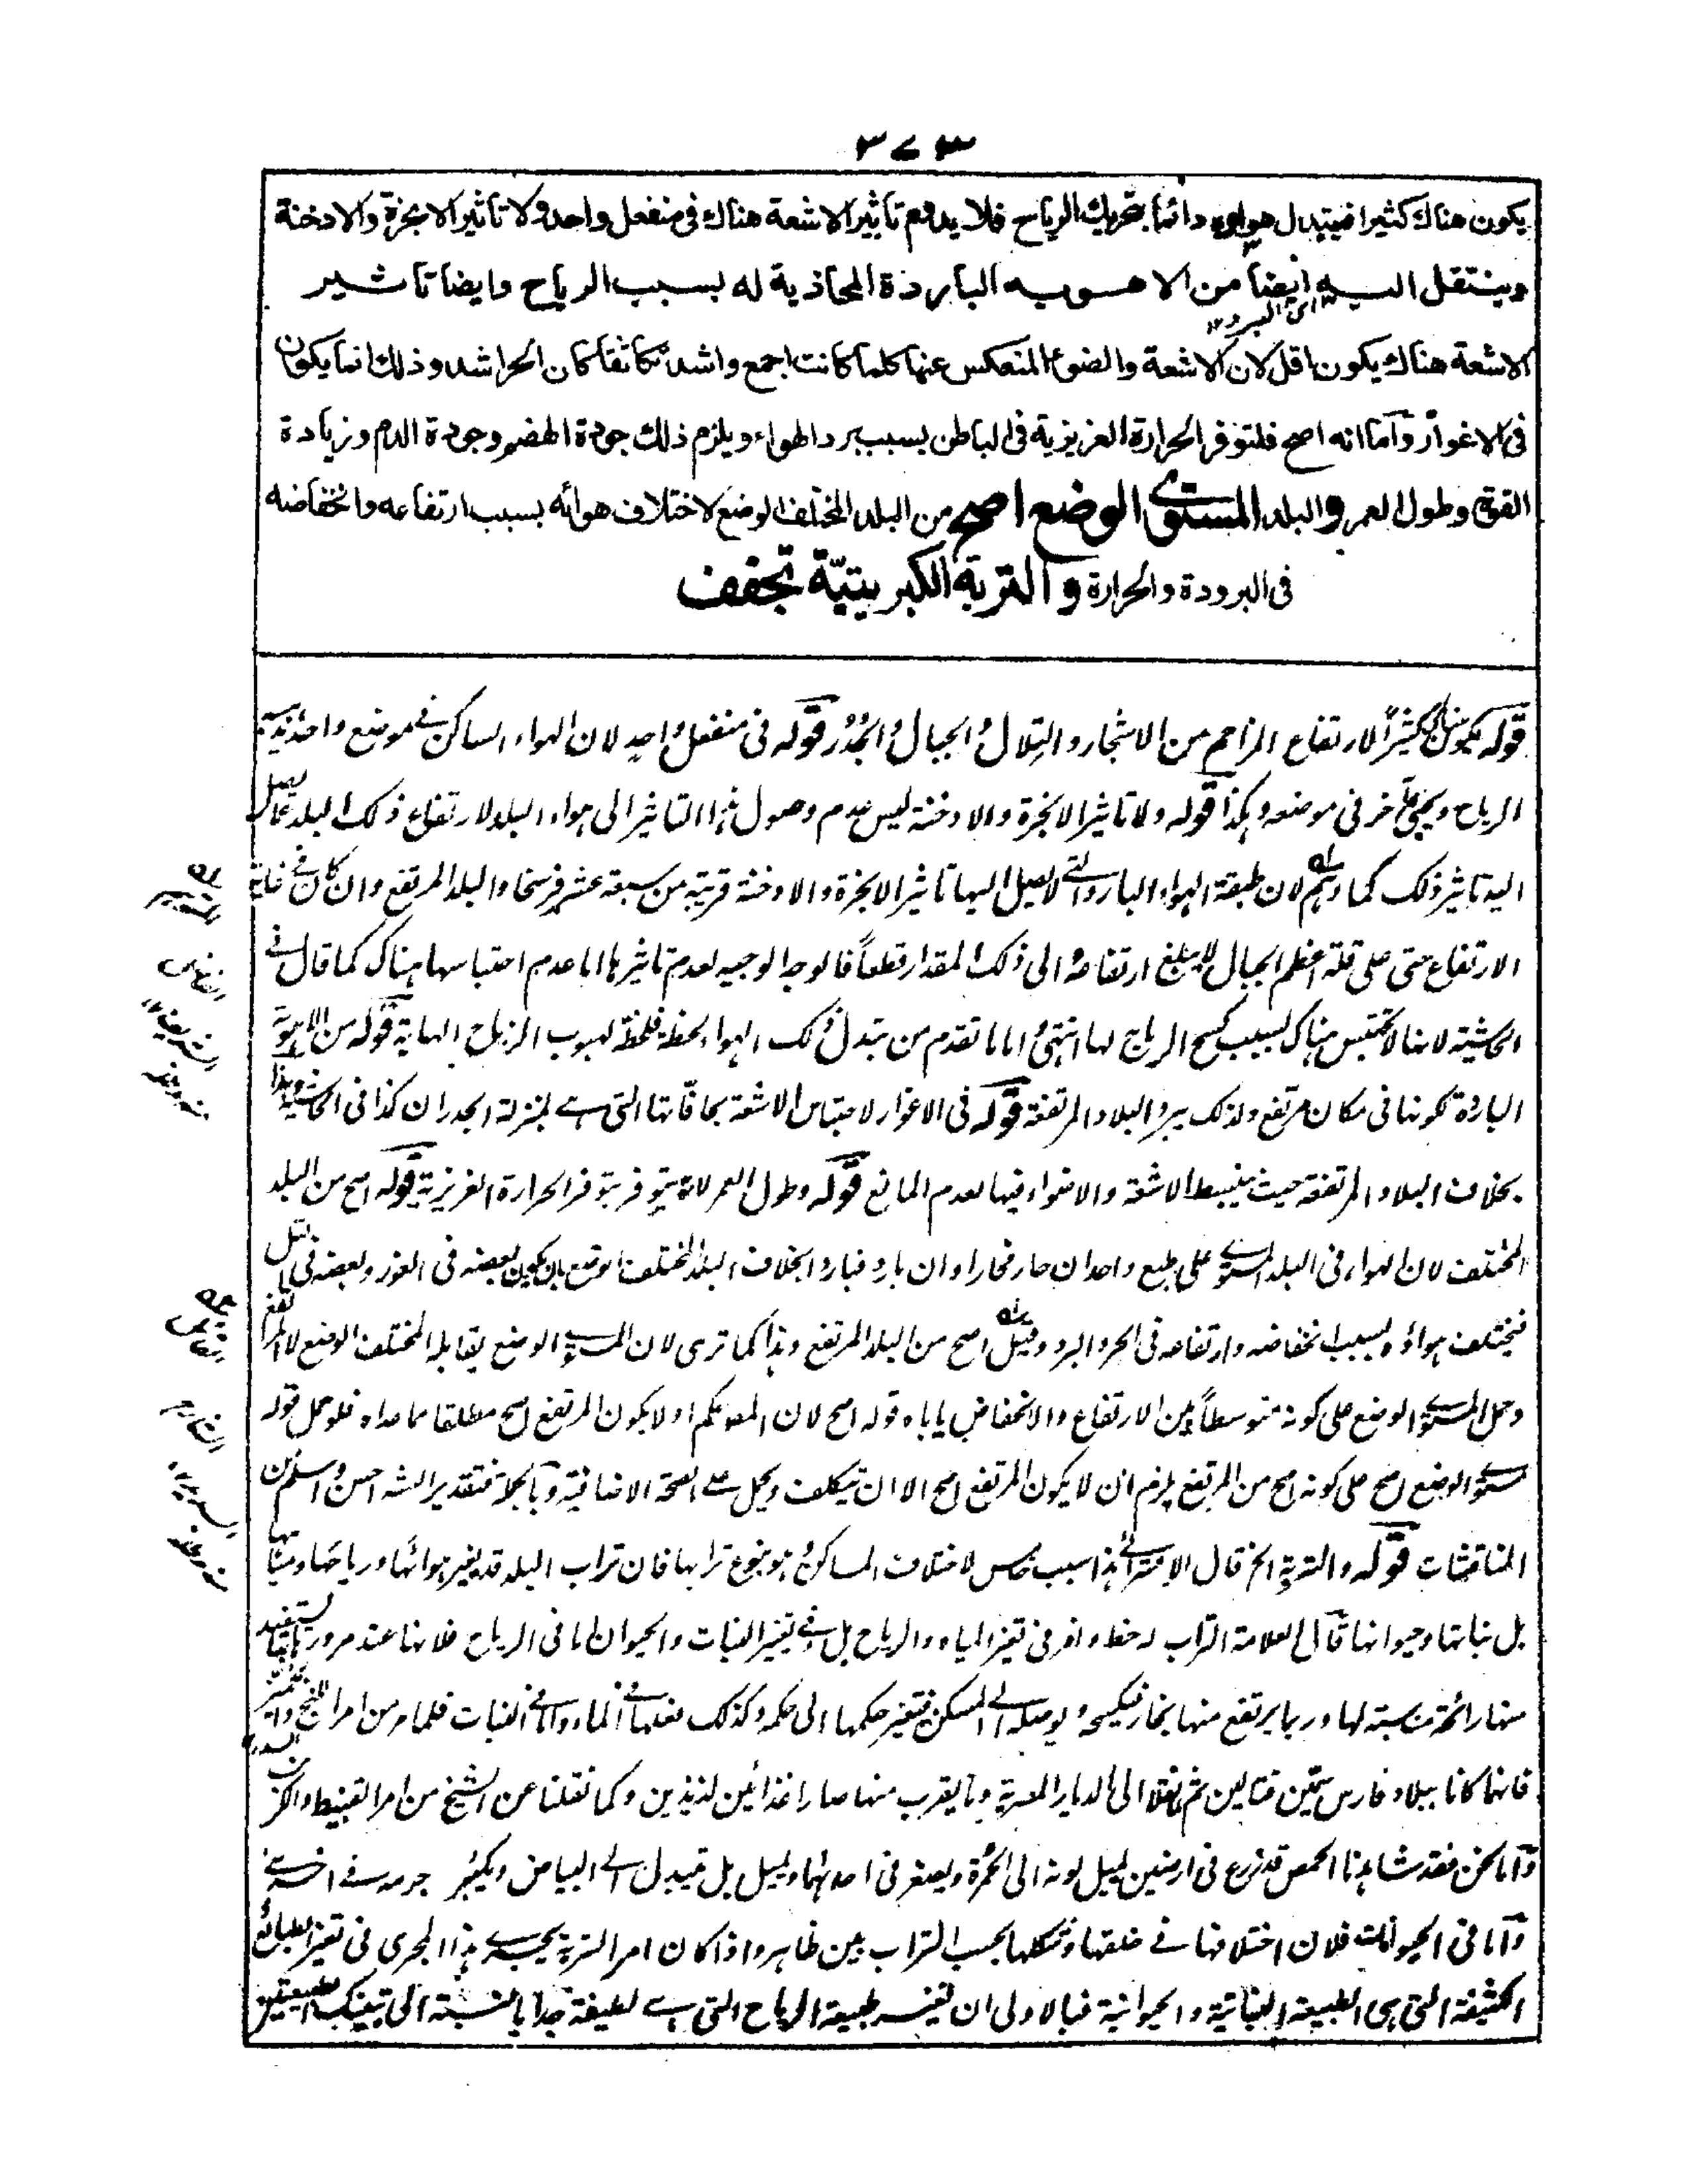 ٣٧٣
يكون هناك كثيرا فيتبدل هواوه دائما بتحريك الرياح فلا يدوم تأثير الاشعة هناك فى منفعل واحد ولا تأثير الابخرة والادخنة
وينتقل اليه ايضا من الاهويه الباردة المحاذية له بسبب الرياح وايضا تاثير
اى البرد ١٢
الاشعة هناك يكون اقل لان الاشعة والضوء المنعكس عنها كلما كانت اجمع واشد تكاثفا كان الحر اشد وذلك انما يكون
فى الاغوار واما انه اصح فلتوفر الحرارة الغريزية فى الباطن بسبب برد الهواء ويلزم ذلك جودة الهضم وجودة الدم وزيادة
القوة وطول العمر والبلد المستوى الوضع اصح من البلد المختلف الوضع لاختلاف هوائه بسبب ارتفاعه وانخفاضه
فى البرودة والحرارة والتربة الكبريتيّة تجفف
قوله يكون هناك كثيرًا لارتفاع المزاحم من الاشجار والتلال والجبال والجُدُر قوله فى منفعل واحد لان الهواء الساكن فى موضع واحد
الرياح ويجئ آخر فى موضعه وهكذا قوله ولا تاثير الابخرة والادخنة ليس عدم وصول هذا التاثير الى هواء البلد لارتفاع ذلك البلد
اليه تاثير ذلك كما وهم لان طبقة الهواء البارد التى لا يصل اليها تاثير الابخرة والادخنة قريبة من سبعة عشر فرسخا والبلد المرتفع وان كان فى غاية
الارتفاع حتى على قلة اعظم الجبال لا يبلغ ارتفاعه الى ذلك المقدار قطعاً فالوجه الوجيه لعدم تاثيرها اما عدم احتباسها هناك كما قال فى
الحاشية لانها لا تحتبس هناك بسبب كسح الرياح لها انتهى واما ما تقدم من تبدل ذلك الهواء لحظة فلحظة لهبوب الرياح الهابة قوله من الاهوية
الباردة لكونها فى مكان مرتفع ولذلك يبرد البلاد المرتفعة قوله فى الاغوار لاحتباس الاشعة بحافاتها التى هى بمنزلة الجدران كذا فى الحاشية وهذا
بخلاف البلاد المرتفعة حيث ينبسط الاشعة والاضواء فيها لعدم المانع قوله وطول العمر لانه يتوفر بتوفر الحرارة الغريزية قوله اصح من البلد
المختلف لان الهواء فى البلد المستوى على طبع واحد ان حار فحارا وان بارد فباردا بخلاف البلد المختلف الوضع بان يكون بعضه فى الغور وبعضه فى التل
فيختلف هواؤه بسبب انخفاضه وارتفاعه فى الحر والبرد وقيل اصح من البلد المرتفع وهذا كما ترى لان المستوى الوضع يقابله المختلف الوضع لا المرتفع
وحمل المستوى الوضع على كونه متوسطاً بين الارتفاع والانخفاض ياباه قوله اصح لان المصـ حكم اولا بكون المرتفع اصح مطلقا مما عداه فلو حمل قوله
مستوى الوضع اصح على كونه اصح من المرتفع يلزم ان لا يكون المرتفع اصح الا ان يتكلف ويحمل على الصحة الاضافية وبالجملة فتقدير الشـ احسن واسلم من
المناقشات قوله والتربة الخ قال هذا سبب خامس لاختلاف المساكن وهو نوع ترابها فان تراب البلد قد يغير هوائها ورياحها ومياهها
بل نباتها وحيوانها قال العلامة التراب له حظ وافر فى تغير المياه والرياح بل وفى تغيير النبات والحيوان اما فى الرياح فلانها عند مرورها بقاع تستفيد
منها رائحة مناسبة لها وربما يرتفع منها بخار فيكسحه ويوصله الى المسكن فتغير حكمها الى حكمه وكذلك فعلها فى الماء واما فى النبات فلما مر من امر
فانهما كانا ببلاد فارس سمّين قتالين ثم نقلا الى الديار المصرية وما يقرب منها صارا غذائين لذيذين وكما نقلنا عن الشيخ من امر القنبيط والكرنب
واما نحن فقد شاهدنا الحمص قد زرع فى ارضين يميل لونه الى الحمرة ويصغر فى احدٰيهما ويميل بل يتبدل الى البياض ويكبر جرمه فى اخرى
واما فى الحيوانات فلان اختلافها فى خلقها وشكلها بحسب التراب بين ظاهر واذا كان امر التربة يجرى هذا المجرى فى تغير الطبائع
الكثيفة التى هى الطبيعة النباتية والحيوانية فبالاولى ان تغير طبيعة الرياح التى هى لطيفة جدا بالنسبة الى تينك الطبيعتين